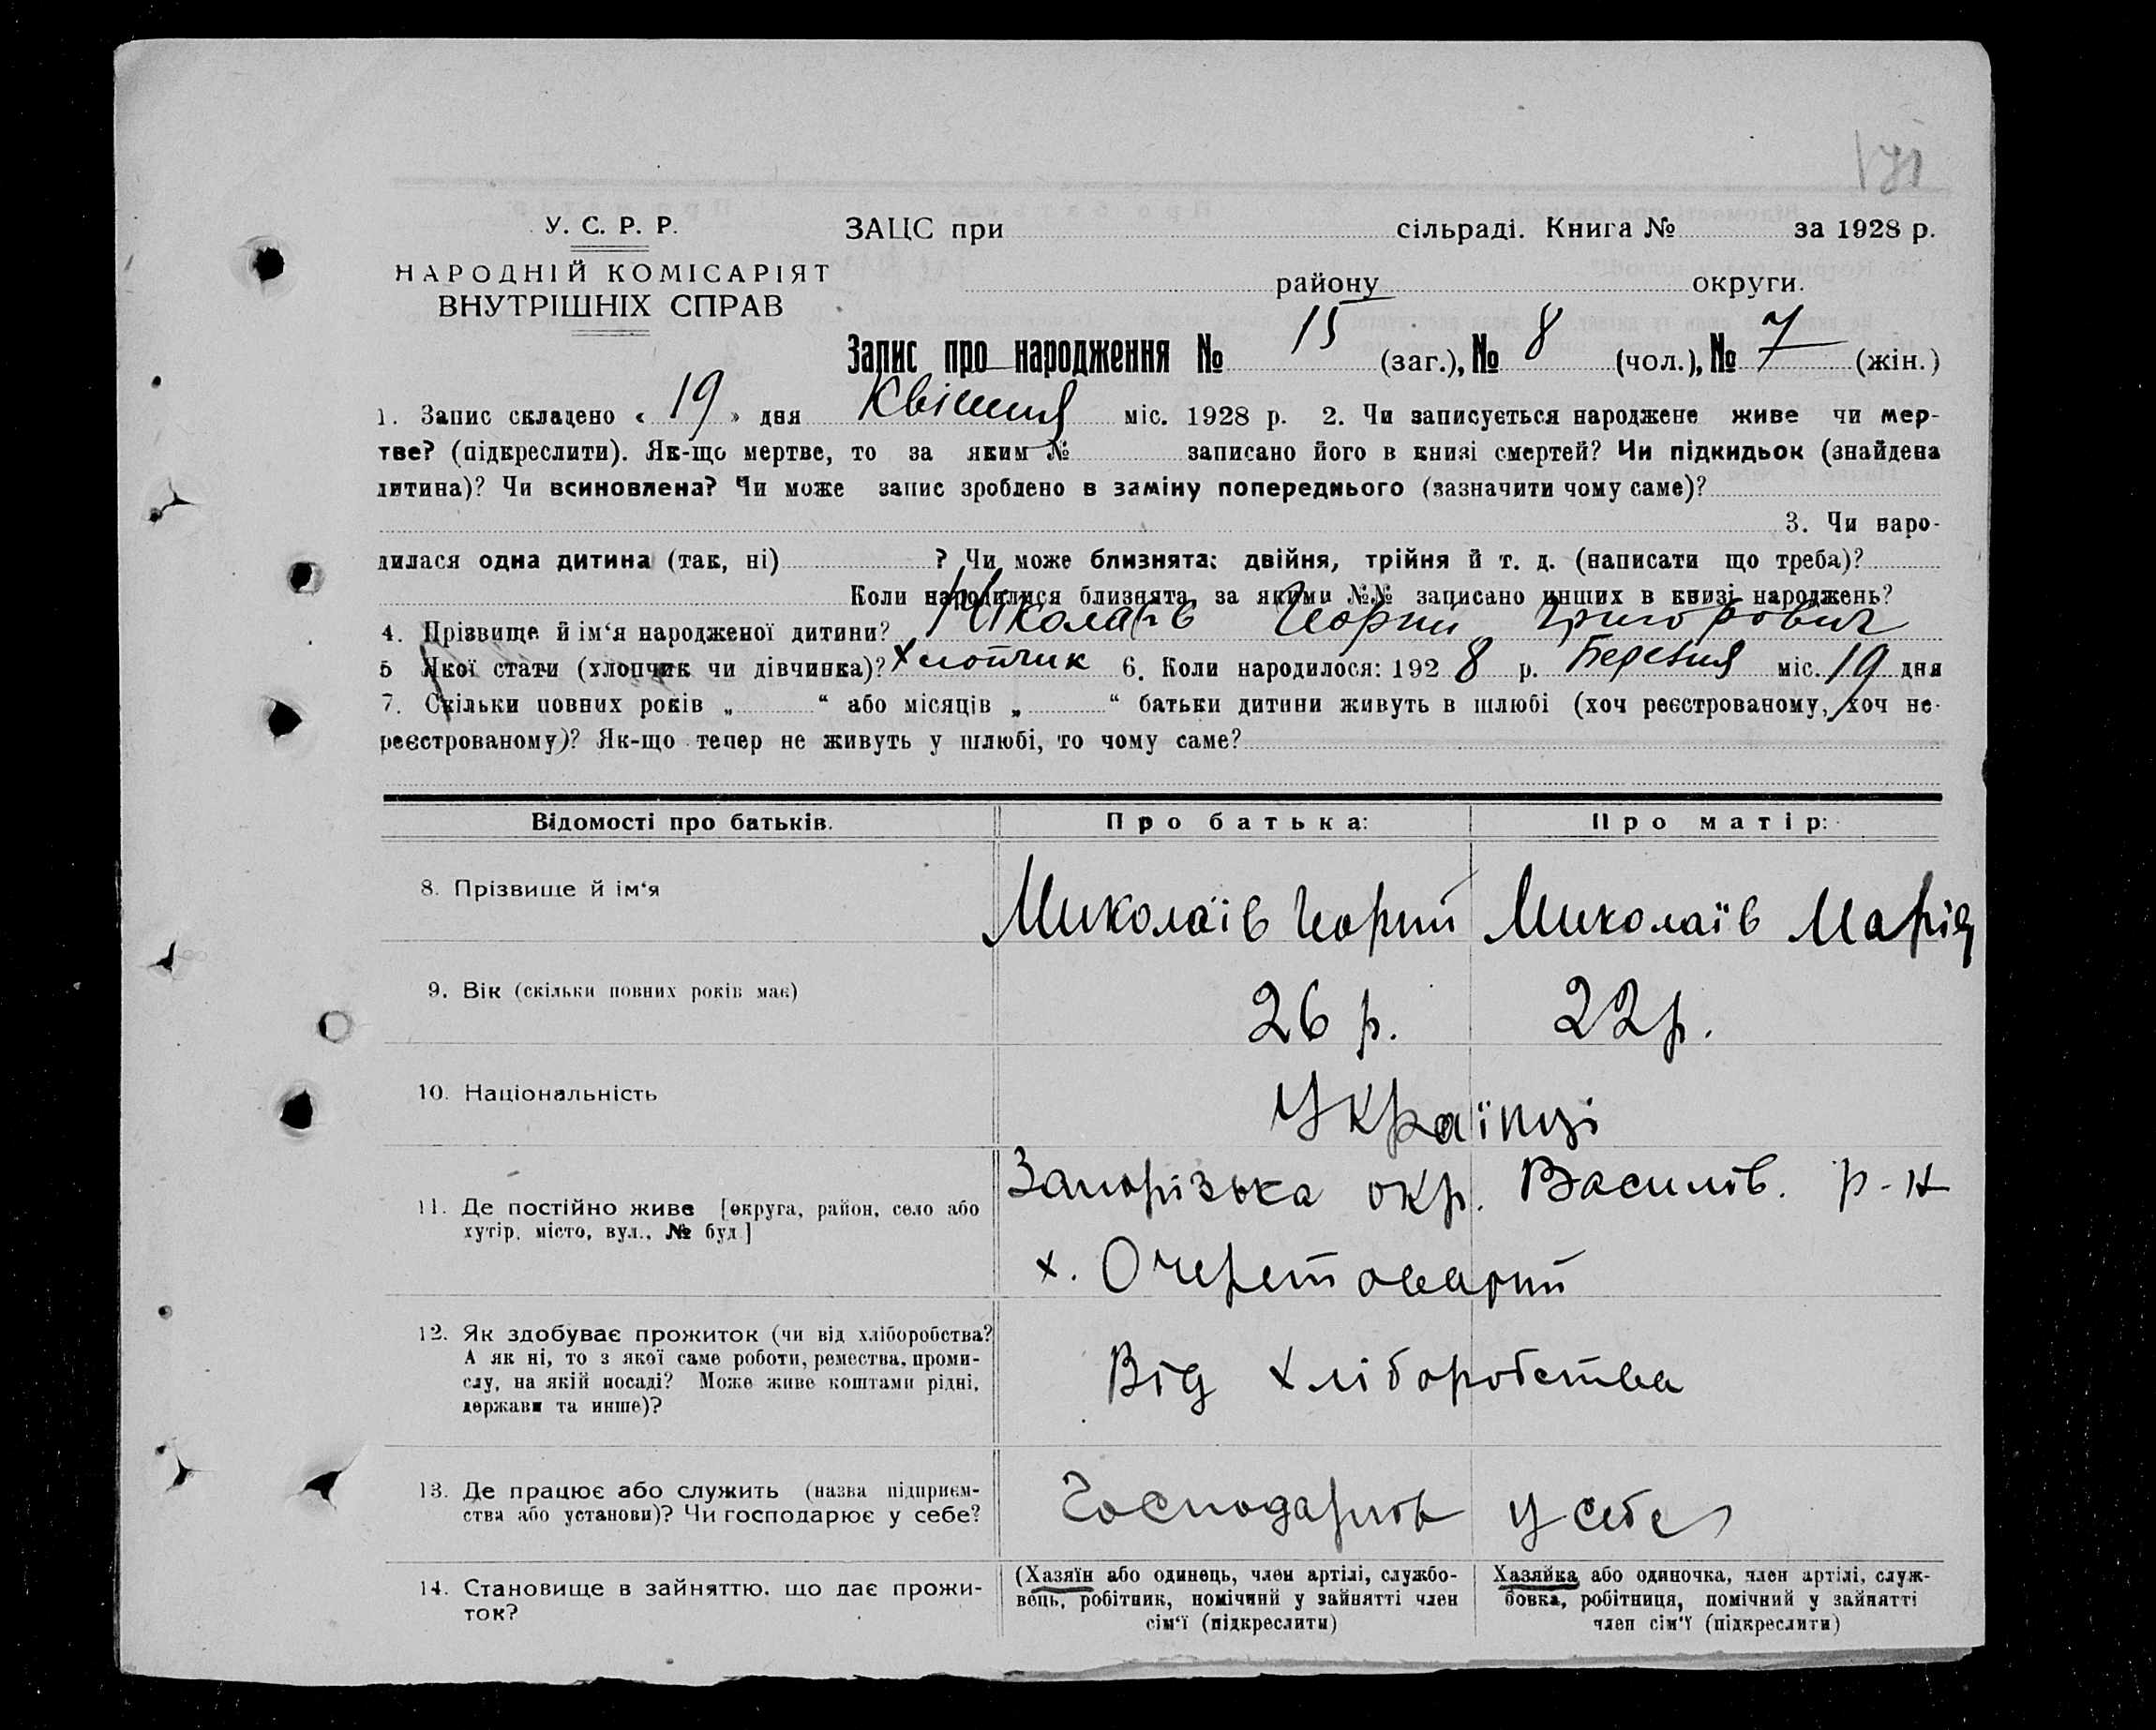 171
У. С. Р. Р.
НАРОДНІЙ КОМІСАРІЯТ
ВНУТРІШНІХ СПРАВ
ЗАЦС при сільраді. Книга № за 1928 р.
району округи.
Запис про народження № 15 (заг.), № 8 (чол.), № 7 (жін.)
1. Запис складено « 19 » дня Квітня міс. 1928 р. 2. Чи записується народжене живе чи мер-
тве? (підкреслити). Як-що мертве, то за яким № записано його в книзі смертей? Чи підкидьок (знайдена
дитина)? Чи всиновлена? Чи може запис зроблено в заміну попереднього (зазначити чому саме)?
3. Чи наро-
дилася одна дитина (так, ні) ? Чи може близнята: двійня, трійня й т. д. (написати що треба)?
Коли народилися близнята, за якими №№ записано инших в книзі народжень?
4. Прізвище й ім‘я народженої дитини? Миколаїв Георгий Григорович
5 Якої стати (хлопчик чи дівчинка)? Хлопчик 6. Коли народилося: 1928 р. Березня міс. 19 дня
7. Скільки повних років „ “ або місяців „ “ батьки дитини живуть в шлюбі (хоч реєстрованому, хоч не-
реєстрованому)? Як-що тепер не живуть у шлюбі, то чому саме?
Відомості про батьків. Про батька: Про матір:
8. Прізвище й ім‘я Миколаїв Миколаїв Марія
9. Вік (скільки повних років має) 26 р. 22 р.
10. Національність Українці
11. Де постійно живе [округа, район, село або
хутір, місто, вул., № буд.]
Запорізька окр. Василів. р-н
х.
12. Як здобуває прожиток (чи від хліборобства?
А як ні, то з якої саме роботи, ремества, проми-
слу, на якій посаді? Може живе коштами рідні,
держави та инше)?
Від хліборобства
13. Де працює або служить (назва підприєм-
ства або установи)? Чи господарює у себе?
у себе
14. Становище в зайняттю, що дає прожи-
ток?
(Хазяїн або одинець, член артілі, службо-
вець, робітник, помічний у зайнятті член
сім‘ї (підкреслити)
Хазяйка або одиночка, член артілі, служ-
бовка, робітниця, помічний у зайнятті
член сім‘ї (підкреслити)